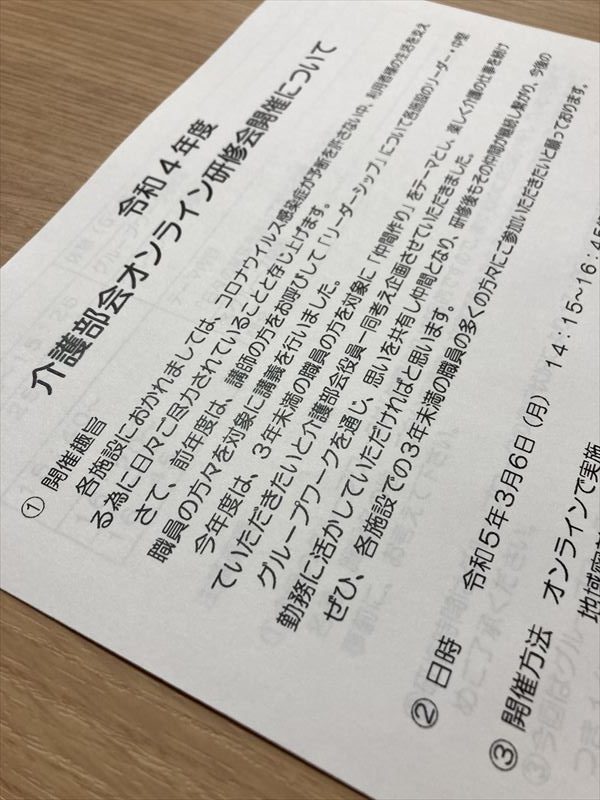 令和４年度
介護部会オンライン研修会開催について
① 開催趣旨
各施設におかれましては、コロナウイルス感染症が予断を許さない中、利用者様の生活を支え
る為に日々ご尽力されていることと存じ上げます。
さて、前年度は、講師の方をお呼びして「リーダーシップ」について各施設のリーダー・中堅
職員の方々を対象に講義を行いました。
今年度は、３年未満の職員の方を対象に「仲間作り」をテーマとし、楽しく介護の仕事を続け
ていただきたいと介護部会役員一同考え企画させていただきました。
グループワークを通じ、思いを共有し仲間となり、研修後もその仲間が継続し繋がり、今後の
勤務に活かしていただければと思います。
ぜひ、各施設での３年未満の職員の多くの方々にご参加いただきたいと願っております。
② 日時　令和５年３月６日（月）１４：１５～１６：４５
③ 開催方法　オンラインで実施